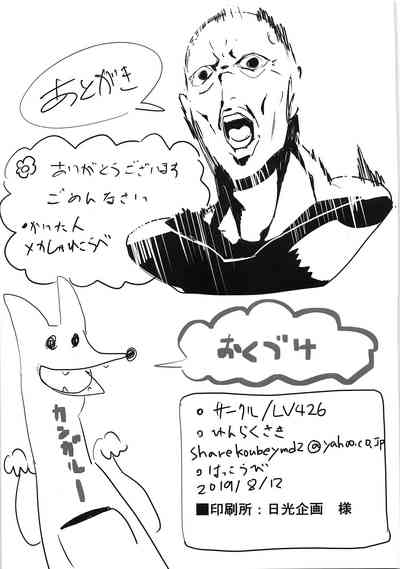 あとがき
ありがとうございます
ごめんなさい
・かいた人
メカしゃれこうべ
おくづけ
カンガルー
○ サークル/LV426
○ れんらくさき
sharekoubeymd2@yahoo.co.jp
○ はっこうび
2019/8/12
■印刷所：日光企画 様